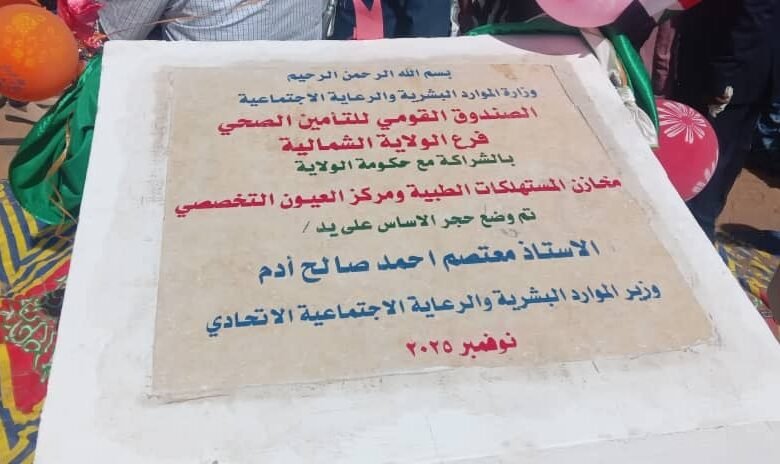 بسم الله الرحمن الرحيم
وزارة الموارد البشرية والرعاية الاجتماعية
الصندوق القومي للتأمين الصحي
فرع الولاية الشمالية
بالشراكة مع حكومة الولاية
مخازن المستهلكات الطبية ومركز العيون التخصصي
تم وضع حجر الاساس على يد /
الاستاذ معتصم احمد صالح أدم
وزير الموارد البشرية والرعاية الاجتماعية الاتحادي
نوفمبر ٢٠٢٥